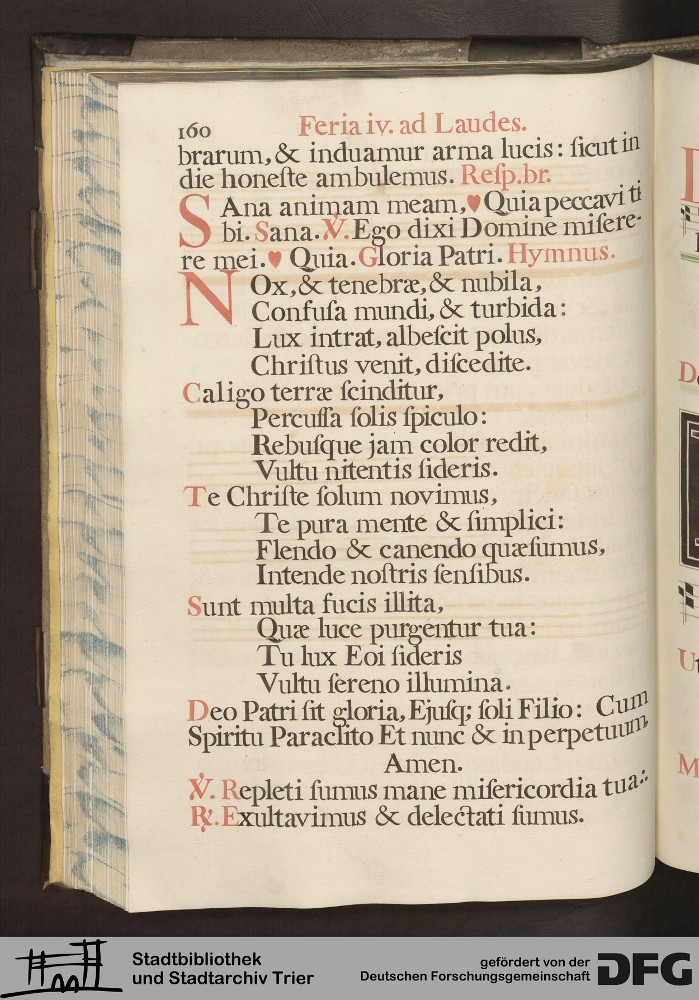 160 Feria iv. ad Laudes.
brarum, & induamur arma lucis: ſicut in
die honeſte ambulemus. Reſp. br.
SAna animam meam, ♥ Quia peccavi ti
bi. Sana. ℣. Ego dixi Domine miſere-
re mei. ♥ Quia. Gloria Patri. Hymnus.
NOx, & tenebræ, & nubila,
Confuſa mundi, & turbida:
Lux intrat, albeſcit polus,
Chriſtus venit, diſcedite.
Caligo terræ ſcinditur,
Percuſſa ſolis ſpiculo:
Rebuſque jam color redit,
Vultu nitentis ſideris.
Te Chriſte ſolum novimus,
Te pura mente & ſimplici:
Flendo & canendo quæſumus,
Intende noſtris ſenſibus.
Sunt multa fucis illita,
Quæ luce purgentur tua:
Tu lux Eoi ſideris
Vultu ſereno illumina.
Deo Patri ſit gloria, Ejuſq; ſoli Filio: Cum
Spiritu Paraclito Et nunc & in perpetuum,
Amen.
℣. Repleti ſumus mane miſericordia tua.
℟. Exultavimus & delectati ſumus.
Stadtbibliothek
und Stadtarchiv Trier
gefördert von der
Deutschen Forschungsgemeinschaft
DFG